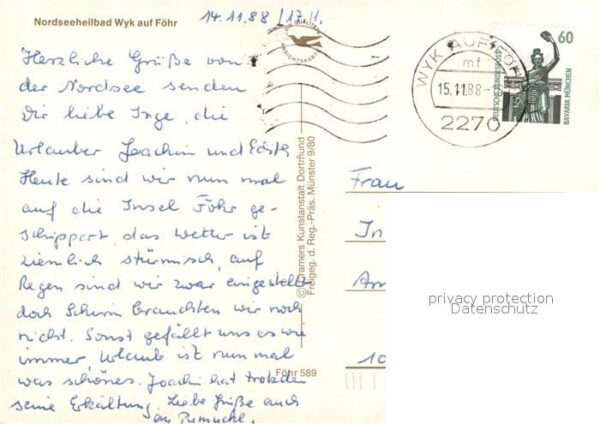 Nordseeheilbad Wyk auf Föhr
14.11.88 /17.11.
Herzliche Grüße von
der Nordsee senden
Dir liebe Inge, die
Urlauber Joachim und Edith
Heute sind wir nun mal
auf die Insel Föhr ge-
schippert, das Wetter ist
ziemlich stürmisch, auf
Regen sind wir zwar eingestellt
doch Schirm brauchten wir noch
nicht. Sonst gefällt uns es wie
immer, Urlaub ist nun mal
was schönes. Joachim hat trotzdem
seine Erkältung. Liebe Grüße auch
an
© Cramers Kunstanstalt Dortmund
Freigeg. d. Reg.-Präs. Münster 9/80
Föhr 589
WYK AUF FÖHR
mf
15.11.88
2270
60
DEUTSCHE BUNDESPOST
BAVARIA MÜNCHEN
Frau
In
Am
10
privacy protection
Datenschutz